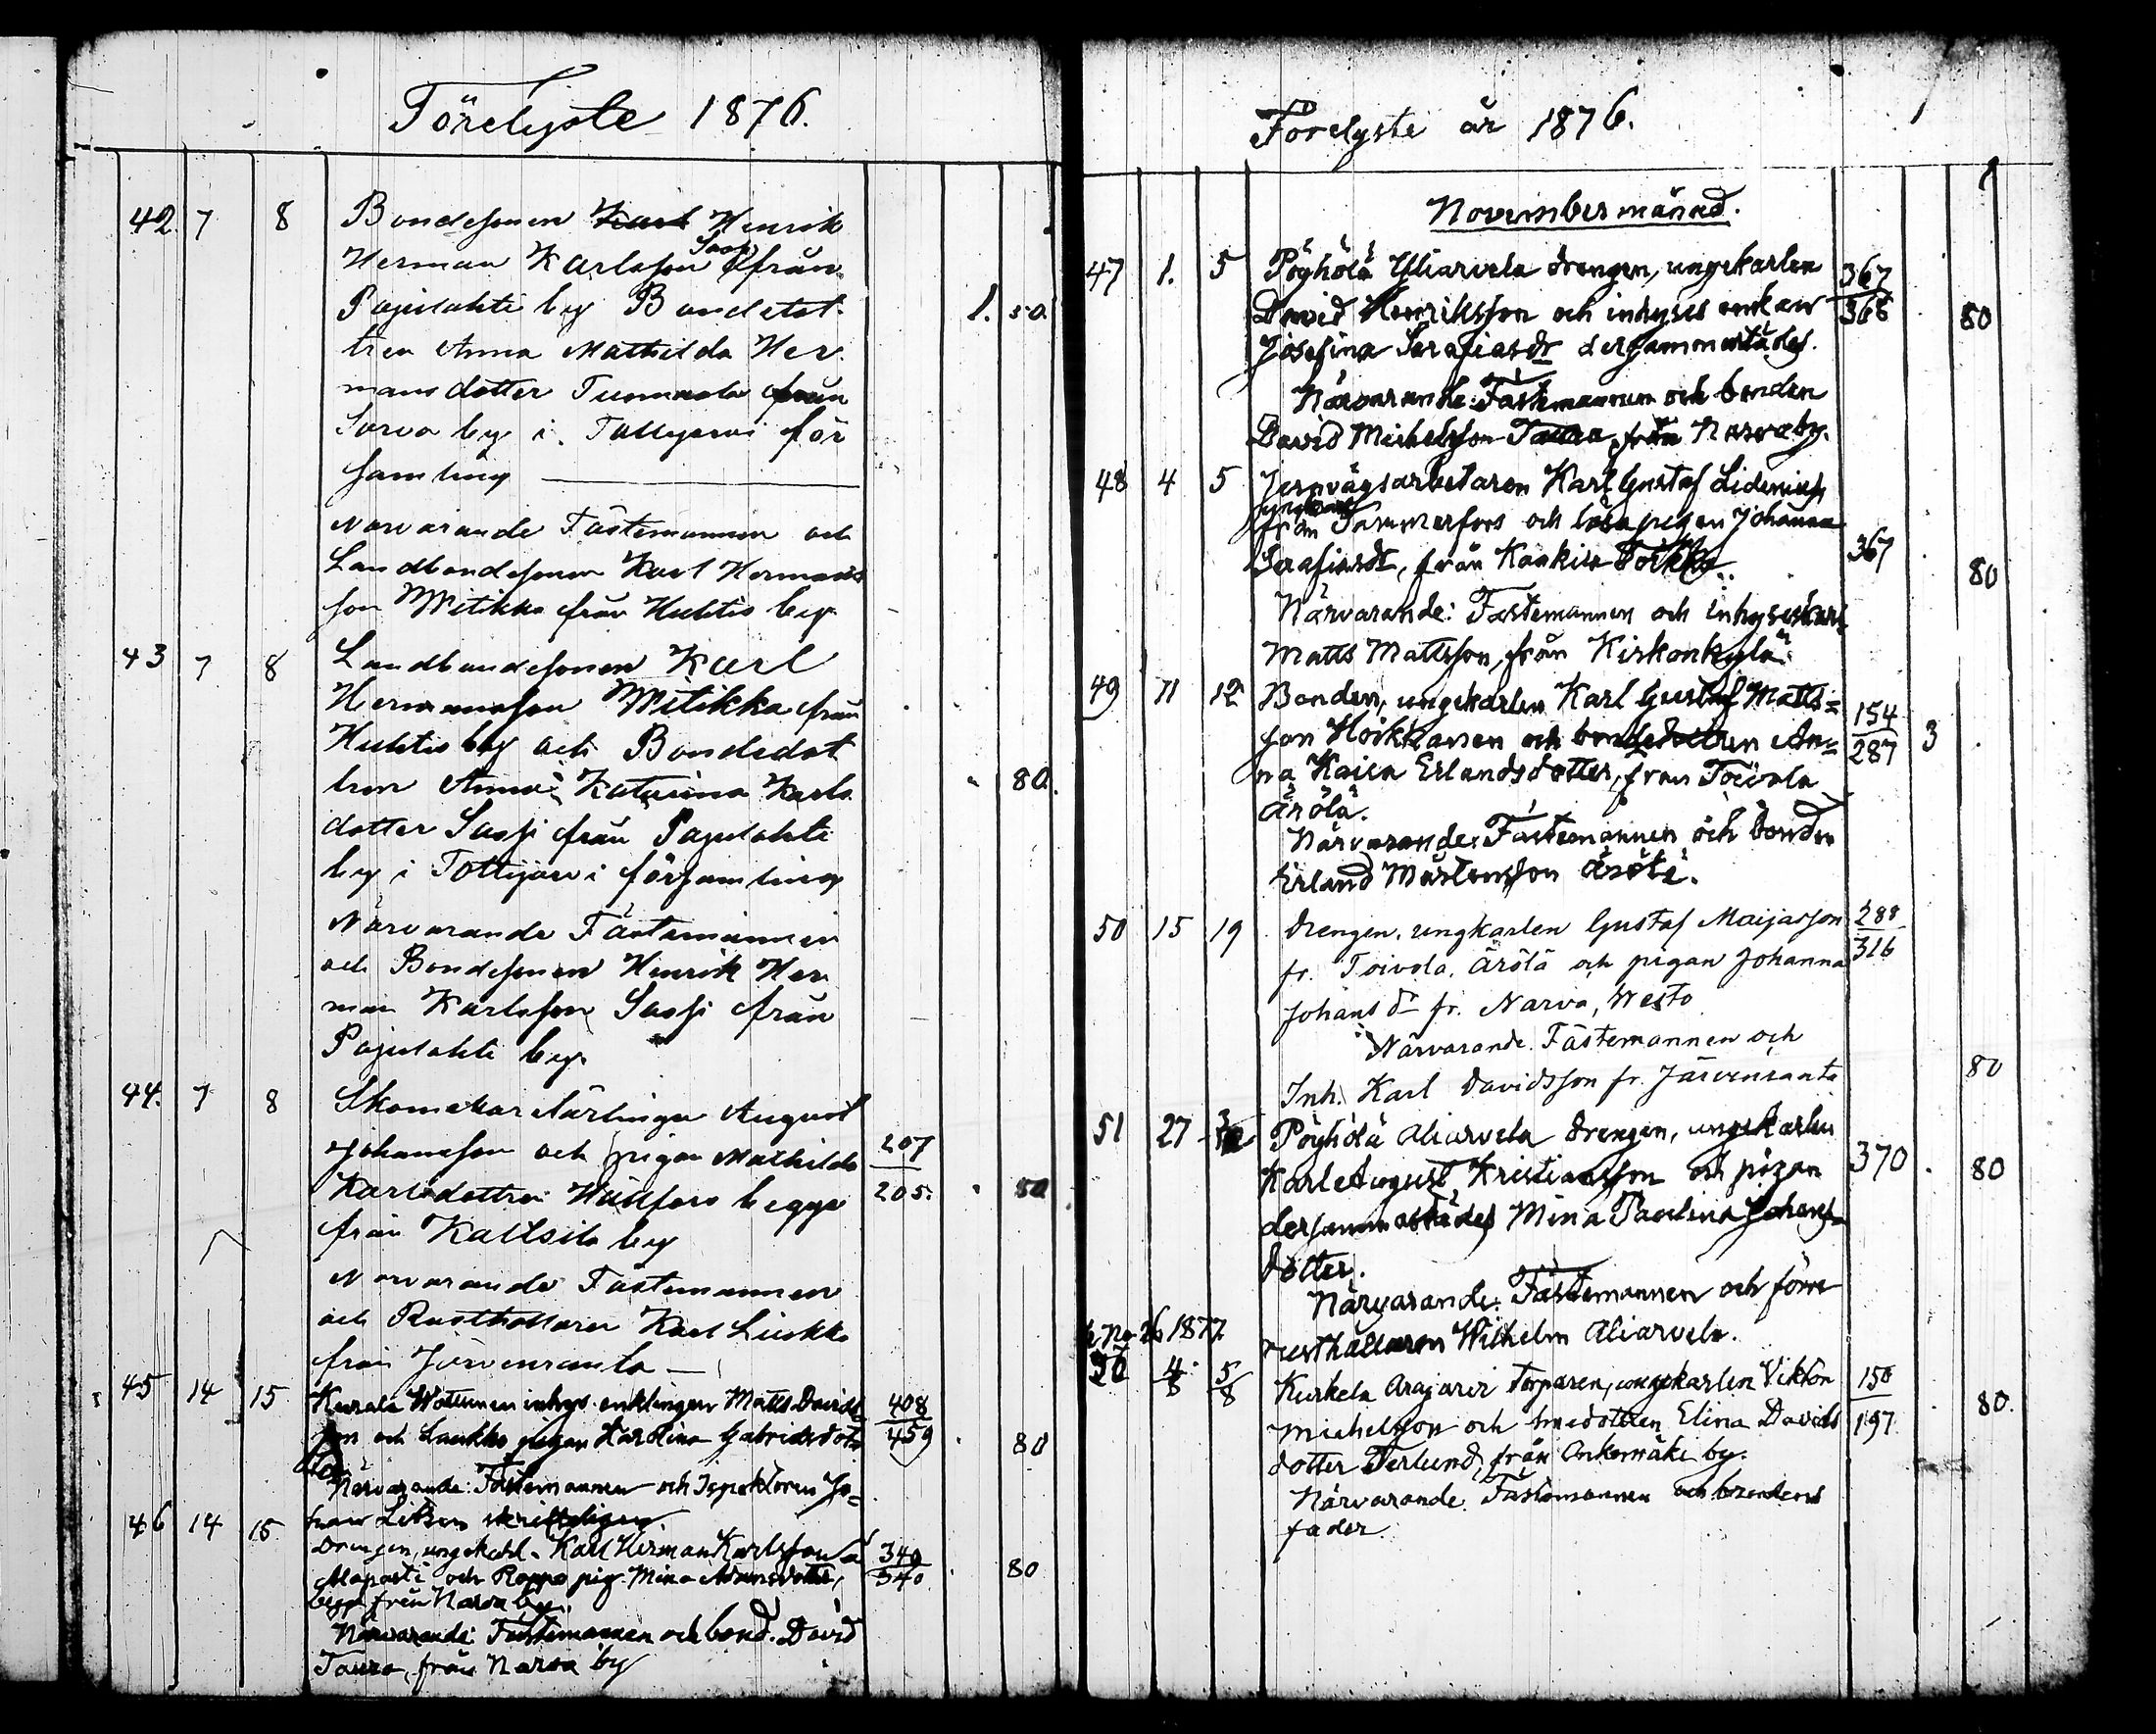 Förelyste 1876.
42. 7 8 Bondesonen Karl Henrik
Herman Karlsson Sassi från
Pajulahti by Bondetot- 1. 50.
tren Anna Mathilda Her
mansdotter Tuomaala från
Sorva by i. Tottijervi för
samling
Närvarande Fästemannen och
Landbondesonen Karl Hermans
son Mitikka från Huhtis by
43 7 8 Landbondesonen Karl
Hermansson Mitikka från
Huhtis by och Bondedot
tren Anna Katarina Karls 80.
dotter Sassi från Pajulahti
by i Tottijärvi församling
Närvarande Fästemannen
och Bondesonen Henrik Her
man Karlsson Sassi från
Pajulahti by.
44. 7 8 Skomakarelärlingen August
Johansson och pigan Mathilda 207
Karlsdotter Hällfors begge 205. 80
från Kaltsila by
Närvarande Fästemannen
och Rusthollaren Karl Liukko
från Järvenranta
45 14 15 Kurala inhys. enklingen Matts Davids 408
son och Laukko pigan Karolina Gabrielsdot- 459 80
ter
Närvarande: Fästemannen och Ispektoren Jo-
han
46 14 15 Drengen, ungekarl. Karl Herman Karlsson å 340
Alapasti och Rappo pig. Mina Adamsdotter, 340 80
begge från Narva by.
Närvarande: Fästemannen och bond. David
Taura, från Narva by
Förelyste år 1876.
November månad.
47 1. 5 Pöyhölä Yliarvela drengen, ungekarlen 367
David Henriksson och inhyses enkan 368 80
Josefina Serafiasdr dersammastädes.
Närvarande: Fästemannen och bonden
David Michelsson Taura, från Narva by.
48 4 5 Jernvägsarbetaren Karl Gustaf Lidenius
från Tammerfors och lösa pigan Johanna
Serafiasdr, från Kaakila Torkko 367 80
Närvarande: Fästemannen och inhyseskarl
Matts Mattsson, från Kirkonkylä.
49 11 12 Bonden, ungekarlen Karl Gustaf Matts= 154
son Hoikkanen och bondedottren An= 287 3
na Kaisa Erlandsdotter, från Toivola
Ärölä.
Närvarande: Fästemannen och bonden
Erland Mårtensson Ärölä.
50 15 19 drengen, ungkarlen Gustaf Maijasson 288
fr. Toivola, Ärölä och pigan Johanna 316
Johansdr fr. Narva, Westo
Närvarande. Fästemannen och 80
Inh. Karl Davidsson fr. Järvenranta
51 27 Pöyhölä Aliarvela drengen, ungekarlen
Karl August Kristiansson och pigan 370 80
dersammastädes Mina Paulina Johans
dotter.
Närvarande: Fästemannen och förre
rusthållaren Wilhelm Aliarvela.
No 26 1877.
4/8 5/8 Kurkela Arajärvi torparen, ungekarlen Viktor 150
Michelsson och Elina Davids 197 80.
dotter Terlund, från Ankemäki by.
Närvarande. Fästemannen och brudens
fader.